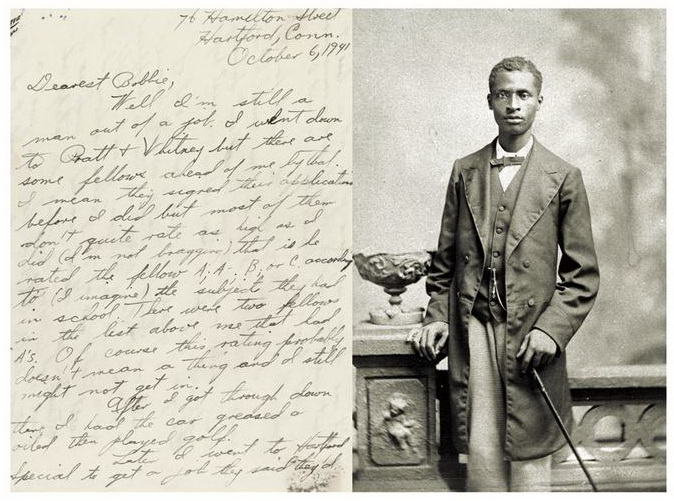 76 Hamilton Street
Hartford, Conn.
October 6, 1941
Dearest Bobbie,
Well I'm still a
man out of a job. I went down
to Pratt & Whitney but there are
some fellows ahead of me by that.
I mean they signed their application
before I did but most of them
don't quite rate as high as I
did (I'm not braggin) that is he
rated the fellow A. A-. B, or C according
to (I imagine) the subjects they had
in school. There were two fellows
in the list above me that had
A's. Of course this rating probably
doesn't mean a thing and I still
might not get in.
After I got through down
there I had the car greased &
oiled then played golf.
Later I went to Hartford
Special to get a job they said they'd